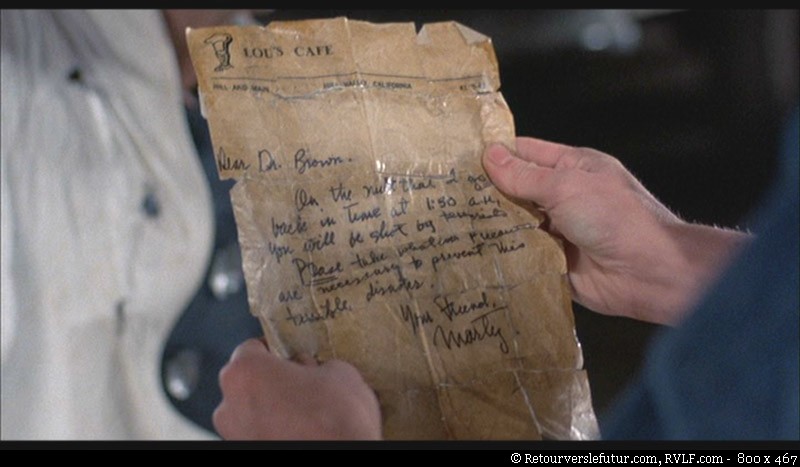 LOU'S CAFE
HILL AND MAIN HILL VALLEY, CALIFORNIA
Dear Dr. Brown.
On the night that I go
back in time at 1:50 a.m,
you will be shot by terrorists
Please take whatever
are necessary to prevent this
terrible disaster.
Your Friend,
Marty.
© Retourverslefutur.com, RVLF.com - 800 x 467